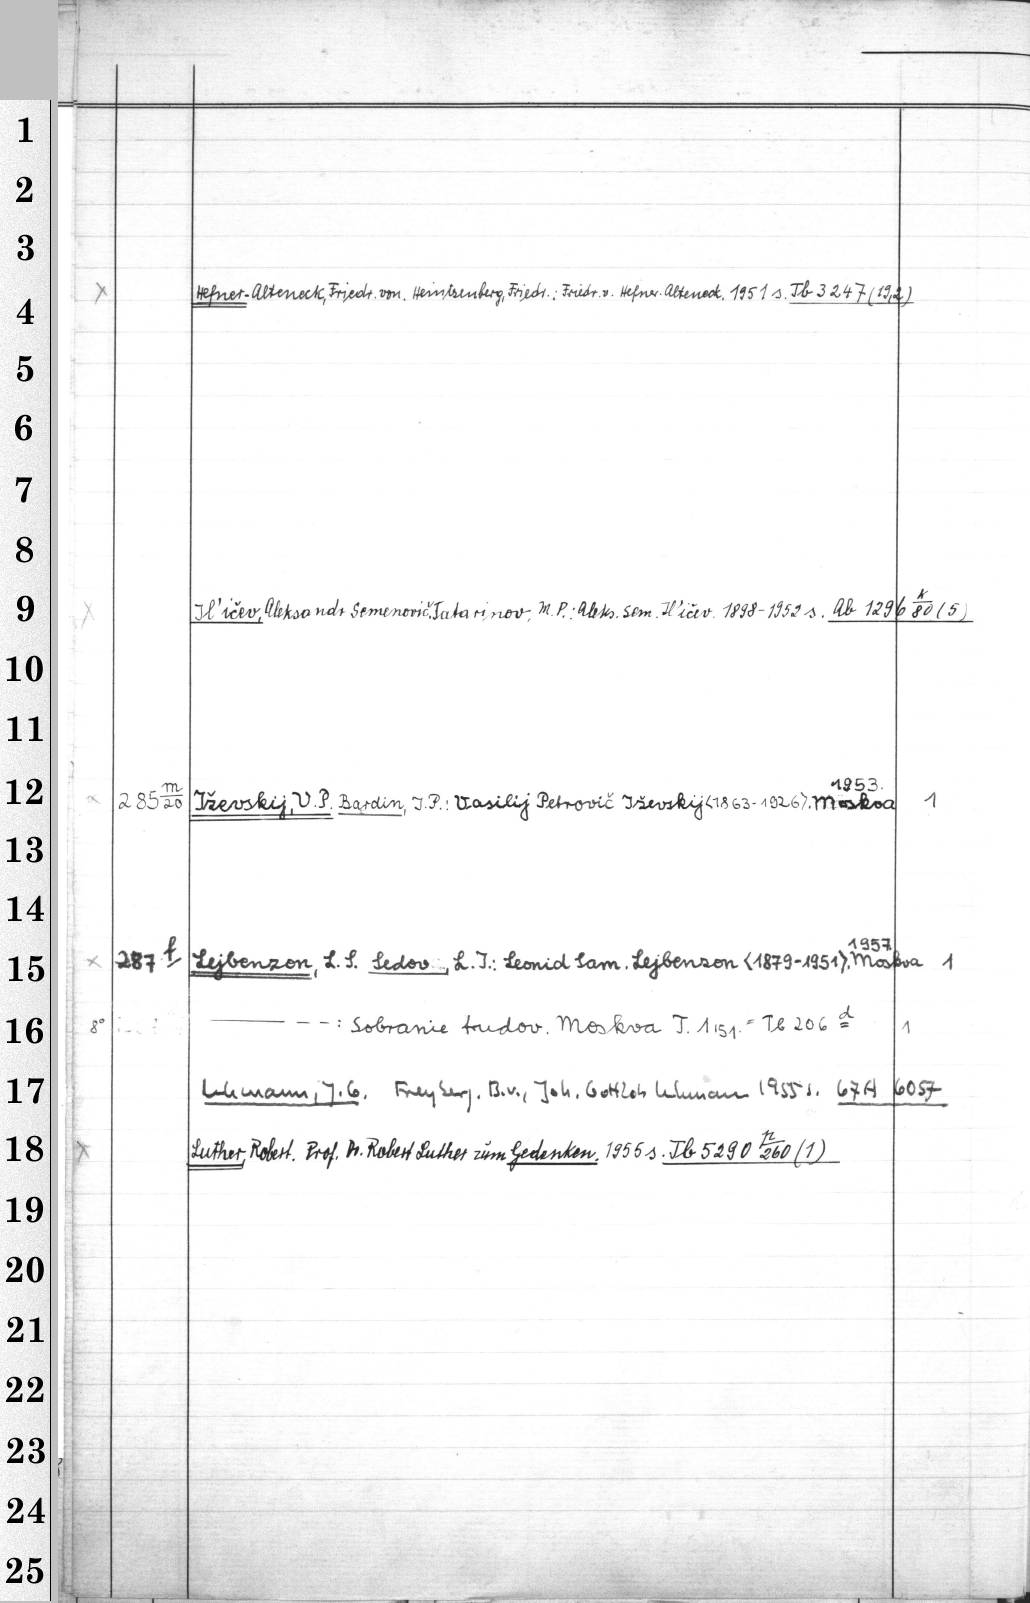 1
2
3
4 x Hefner-Alteneck, Friedr. von. Heintzenberg, Friedr.: Friedr. v. Hefner-Alteneck. 1951 s. Tb 3247 (19,2)
5
6
7
8
9 x Il'ičev, Aleksandr Semenovič. Tatarinov, M. P.: Aleks. Sem. Il'ičev. 1898-1952 s. Ab 1296 k/80 (5)
10
11
12 x 285 m/20 Iževskij, V. P. Bardin, I. P.: Vasilij Petrovič Iževskij <1863-1926>. Moskva 1953. 1
13
14
15 x 287 f Lejbenzon, L. S. Sedov, L. I.: Leonid Sam. Lejbenzon <1879-1951>. Moskva 1957 1
16 8° ——— - -: Sobranie trudov. Moskva T. 1,51. = Te 206 d 1
17 Lehmann, J. G. Freyberg, B. v., Joh. Gottlob Lehmann 1955 s. 67A 6057
18 x Luther, Robert. Prof. Dr. Robert Luther zum Gedenken. 1956 s. Tb 5290 n/260 (1)
19
20
21
22
23
24
25